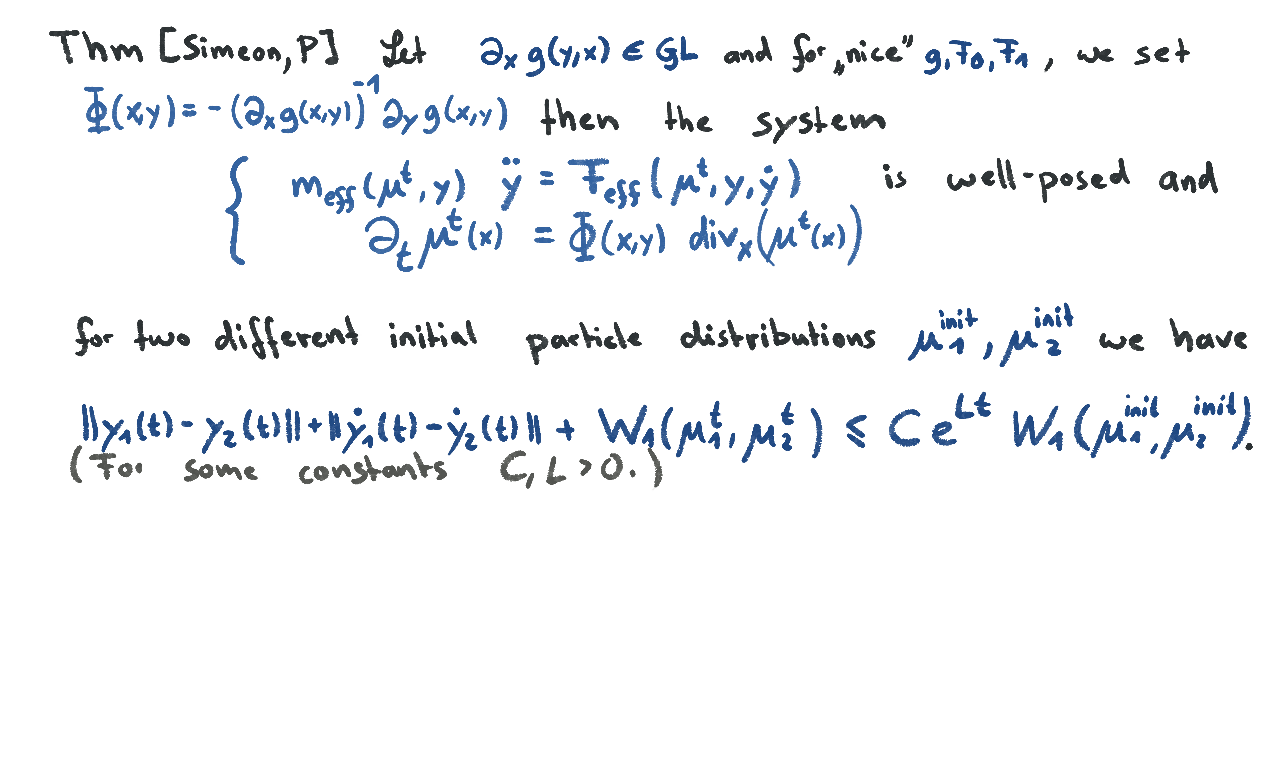 Thm [Simeon, P] Let ∂ₓ g(y,x) ∈ GL and for „nice” g, F₀, F₁, we set
Φ(x,y) = - (∂ₓg(x,y))⁻¹ ∂ᵧ g(x,y) then the system
{ m_eff(μᵗ, y) ÿ = F_eff(μᵗ, y, ẏ) is well-posed and
∂ₜ μᵗ(x) = Φ(x,y) divₓ(μᵗ(x))
for two different initial particle distributions μ₁^init, μ₂^init we have
||y₁(t) - y₂(t)|| + ||ẏ₁(t) - ẏ₂(t)|| + W₁(μ₁ᵗ, μ₂ᵗ) ⩽ C e^{Lt} W₁(μ₁^init, μ₂^init).
(For some constants C, L > 0.)